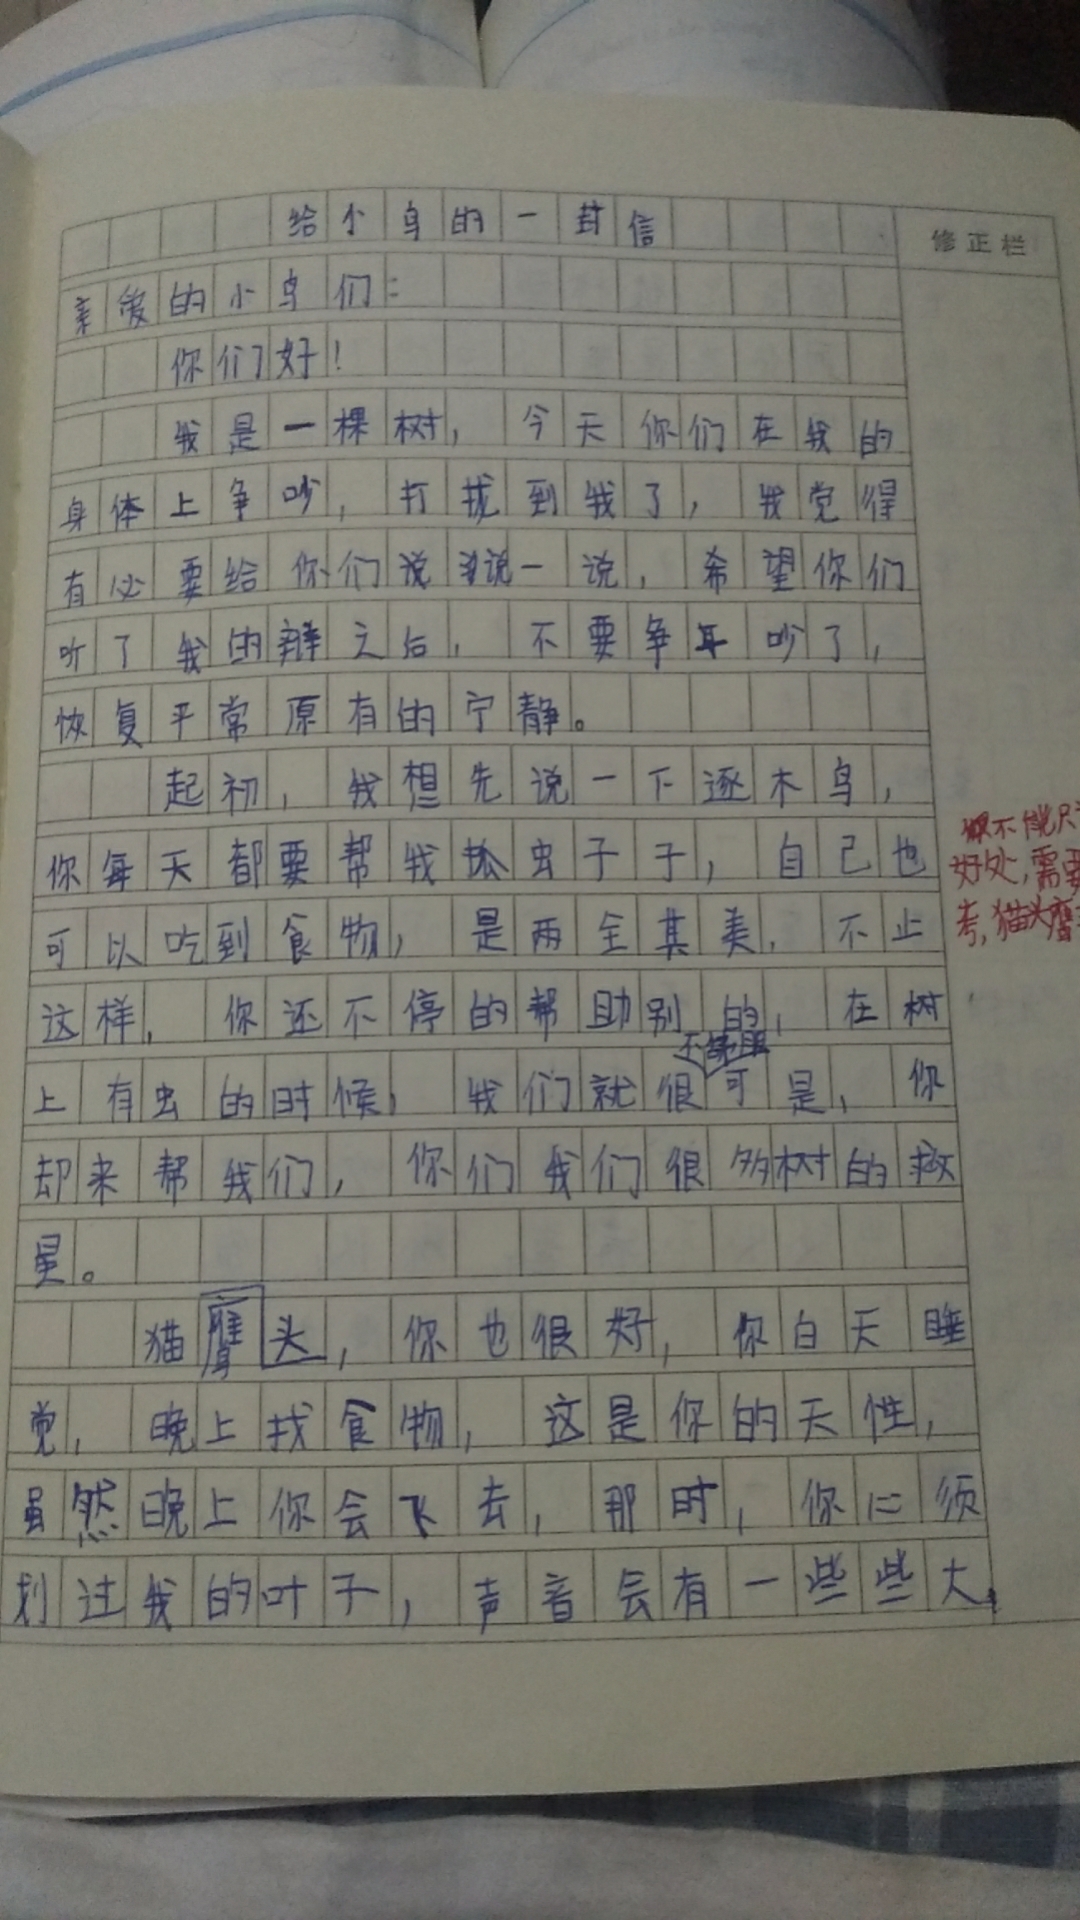 给小鸟的一封信
修正栏
亲爱的小鸟们：
你们好！
我是一棵树，今天你们在我的
身体上争吵，打扰到我了，我觉得
有必要给你们说说一说，希望你们
听了我的辩之后，不要争吵了，
恢复平常原有的宁静。
起初，我想先说一下逐木鸟，
你每天都要帮我抓虫子子，自己也
可以吃到食物，是两全其美，不止
这样，你还不停的帮助别的，在树
不舒服
上有虫的时候，我们就很可是，你
却来帮我们，你们我们很多树的救
星。
猫鹰头，你也很好，你白天睡
觉，晚上找食物，这是你的天性，
虽然晚上你会飞去，那时，你必须
划过我的叶子，声音会有一些些大，
不能只
好处，需要
考，猫头鹰